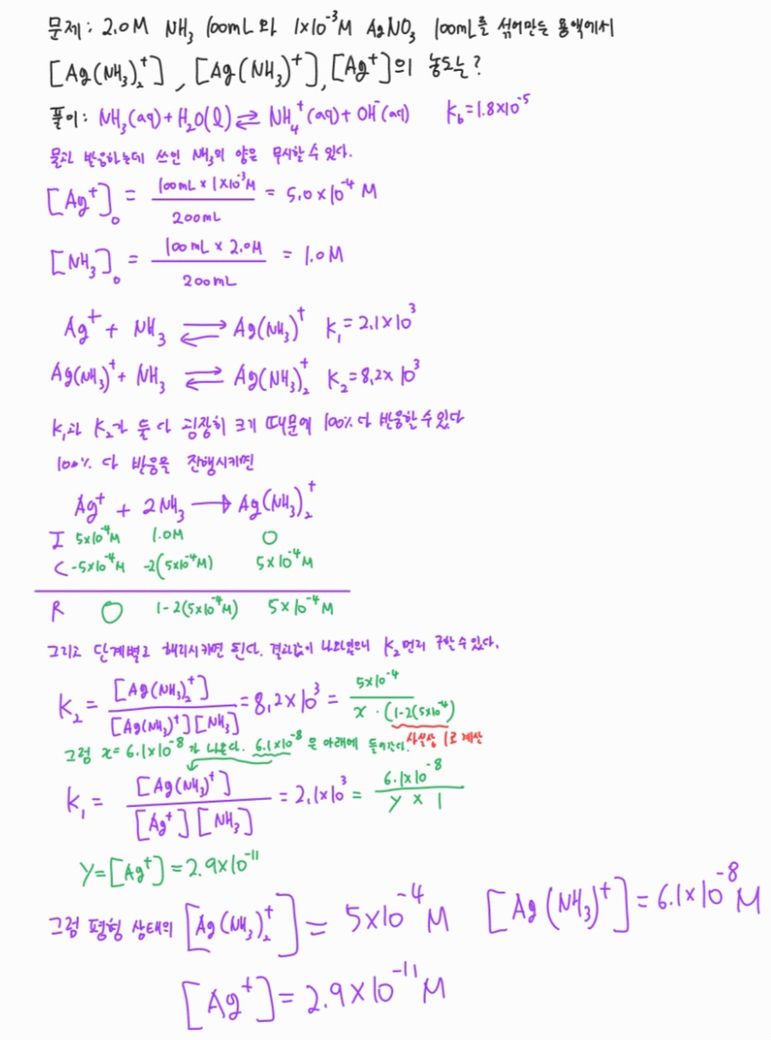 문제: 2.0M NH₃ 100mL와 1×10⁻³M AgNO₃ 100mL를 섞어만든 용액에서
[Ag(NH₃)₂⁺], [Ag(NH₃)⁺], [Ag⁺]의 농도는?
풀이: NH₃(aq)+H₂O(l) ⇄ NH₄⁺(aq)+OH⁻(aq) K_b=1.8×10⁻⁵
물과 반응하는데 쓰인 NH₃의 양은 무시할 수 있다.
[Ag⁺]₀ = (100mL × 1×10⁻³M)/(200mL) = 5.0×10⁻⁴ M
[NH₃]₀ = (100mL × 2.0M)/(200mL) = 1.0M
Ag⁺ + NH₃ ⇄ Ag(NH₃)⁺ K₁=2.1×10³
Ag(NH₃)⁺+ NH₃ ⇄ Ag(NH₃)₂⁺ K₂=8.2×10³
K₁과 K₂가 둘 다 굉장히 크기 때문에 100% 다 반응할 수 있다
100% 다 반응을 진행시키면
Ag⁺ + 2NH₃ → Ag(NH₃)₂⁺
I 5×10⁻⁴M 1.0M 0
C -5×10⁻⁴M -2(5×10⁻⁴M) 5×10⁻⁴M
R 0 1-2(5×10⁻⁴M) 5×10⁻⁴M
그리고 단계별로 해리시키면 된다. 결과값이 나와있으니 K₂먼저 구할 수 있다.
K₂ = [Ag(NH₃)₂⁺]/([Ag(NH₃)⁺][NH₃]) = 8.2×10³ = (5×10⁻⁴)/(x·(1-2(5×10⁻⁴)))
그럼 x=6.1×10⁻⁸가 나온다. 6.1×10⁻⁸은 아래에 들어간다. 사실상 1로 계산
K₁ = [Ag(NH₃)⁺]/([Ag⁺][NH₃]) = 2.1×10³ = (6.1×10⁻⁸)/(y × 1)
Y=[Ag⁺]=2.9×10⁻¹¹
그럼 평형 상태의 [Ag(NH₃)₂⁺] = 5×10⁻⁴M [Ag(NH₃)⁺]=6.1×10⁻⁸M
[Ag⁺]=2.9×10⁻¹¹M